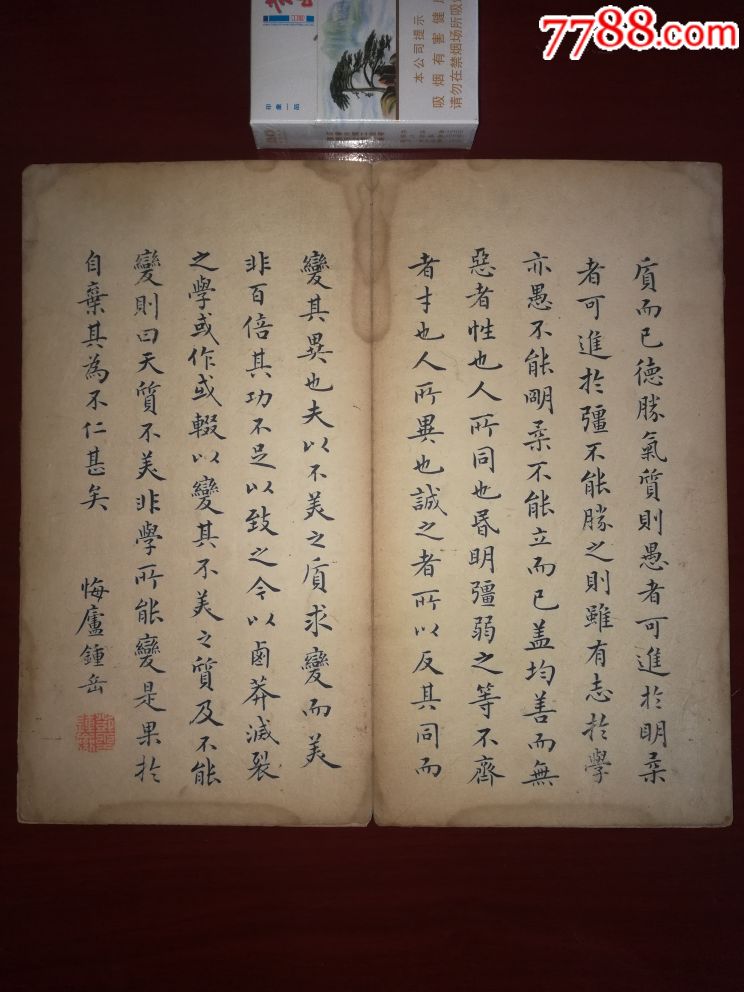 7788.com
本公司提示
吸烟有害健康
请勿在禁烟场所吸烟
質而已德勝氣質則愚者可進於明柔
者可進於彊不能勝之則雖有志於學
亦愚不能明柔不能立而已盖均善而無
惡者性也人所同也昏明彊弱之等不齊
者才也人所異也誠之者所以反其同而
變其異也夫以不美之質求變而美
非百倍其功不足以致之今以鹵莽滅裂
之學或作或輟以變其不美之質及不能
變則曰天質不美非學所能變是果於
自棄其為不仁甚矣
悔廬鍾岳